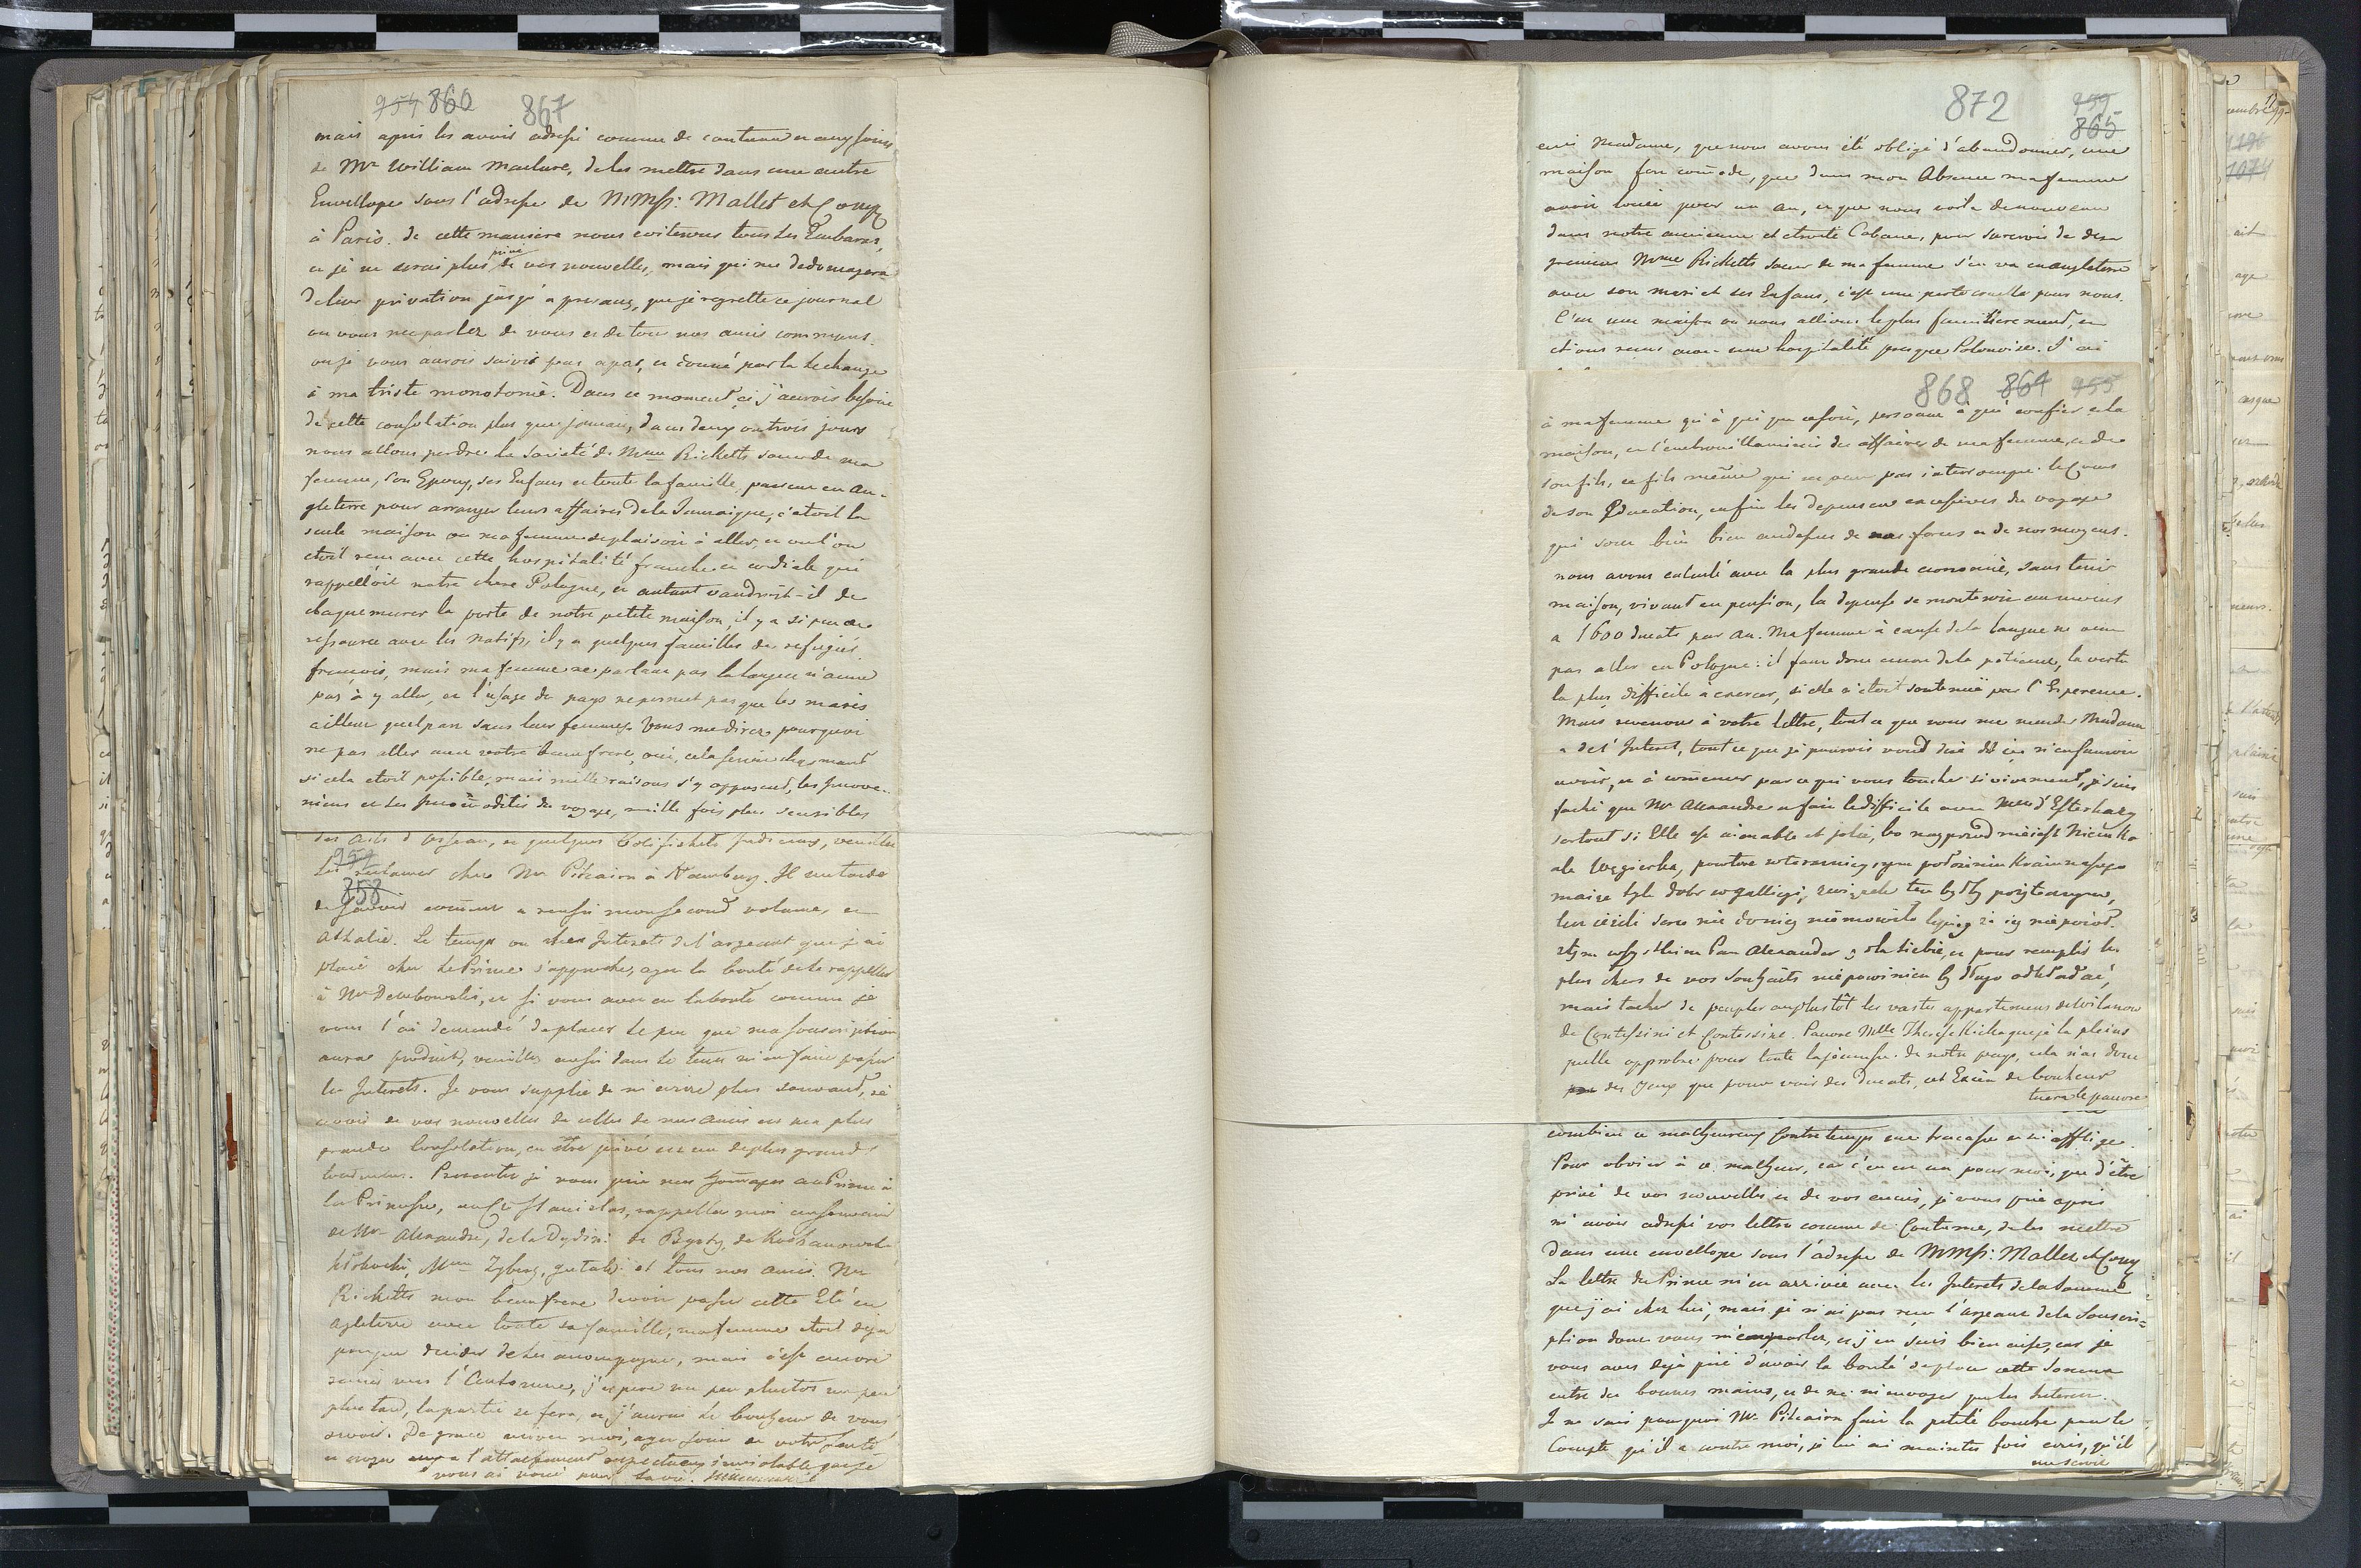 954 860 867
mais après les avoir adressé comme de coutume aux soins
de Mr William Maclure, de les mettre dans une autre
Enveloppe sous l'adresse de MMss: Mallet et Comp
à Paris. de cette maniere nous eviterons tous les Embaras,
et je ne serai plus privé de vos nouvelles, mais qui me dedomagera
de leur privation jusqu'a present, que je regrette ce journal
ou vous me parlez de vous et de tous nos amis communs.
ou je vous aurois suivis pas a pas, et donné par la le change
à ma triste monotonie. Dans ce moment ci j'aurois besoin
de cette consolation plus que jamais, dans deux ou trois jours
nous allons perdre la Societé de Mme Ricketts soeur de ma
femme, son Epoux, ses Enfans et toute la famille, passent en An-
gleterre pour arranger leurs affaires de la Jamaique, c'etoit la
seule maison ou ma femme se plaisoit à aller, et ou l'on
etoit recu avec cette hospitalité franche et cordiale qui
rappelloit notre chere Pologne, et autant vaudroit-il de
claquemurer la porte de notre petite maison, il y a si peu de
ressource avec les natifs, il y a quelques familles de refugiés
francois, mais ma femme ne parlant pas la langue n'aime
pas à y aller, et l'usage du pays ne permet pas que les maris
aillent quelpart sans leurs femmes. Vous me direz pourquoi
ne pas aller avec votre beaufrere, oui, cela seroit charmant
si cela etoit possible, mais mille raisons s'y opposent, les Inconve-
niens et les Incom̄odités du voyage, mille fois plus sensibles
des oeils d'oiseau, et quelques Colifichets Indiens, veuillez
952
les reclamer chez Mr Pitcairn à Hamburg. Il me tarde
858
de savoir com̄ent a reussi mon second volume, et
Athalie. Le temps ou les Interets de l'argent que j'ai
placé chez le Prince s'approche, ayez la bonté de le rappeller
à Mr Dembowski, et si vous avez eu la bonté comme je
vous l'ai demandé de placer le peu que ma souscription
aura produit, veuillez aussi dans le tems m'en faire passer
les Interets. Je vous supplie de m'ecrire plus souvent,
avoir de vos nouvelles de celles de nos amis est ma plus
grande Consolation, en être privé est un de plus grands
tourmens. Presentez je vous prie mes hom̄ages au Prince à
la Princesse, au Ct Stanislas, rappellez moi au souvenir
de Mr Alexandre, de la Dydini de Bysty, de Kochanowski
Mme Zyberg, et tous nos amis. Mr
Ricketts mon beaufrere devoit passer cette Eté en
Agleterre avec toute sa famille, ma femme etoit deja
presque decidée de les accompagner, mais c'est encore
remis vers l'Automne, j'espere un peu plustot un peu
plus tard, la partie se fera, et j'aurai le bonheur de vous
revoir. De grace ecrivez moi, ayez soin de votre santé
et croyez à l'attachement respectueux et inviolable que je
vous ai voué pour la vie.
872 959
865
ecris Madame, que nous avons été obligé d'abandonner, une
maison fort com̄ode, que dans mon Absence ma femme
avoit louée pour un an, et que nous voila de nouveau
dans notre ancienne et etroite Cabane, pour surcrois de desa
gremens Mme Ricketts soeur de ma femme s'en va en angleterre
avec son mari et ses Enfans, c'est une perte cruelle pour nous.
C'est une maison ou nous allions le plus familierement, et
etions recus avec une hospitalité presque Polonoise. J'ai
868 864 955
à ma femme qu'à qui que ce soit, personne à qui confier et la
maison, et l'embrouillamini des affaires de ma femme, et de
son fils, ce fils même qui ne peut pas interrompre le Cours
de son Education, enfin les depenses excessives du voyage
qui sont bien bien audessus de nos forces et de nos moyens.
nous avons calculé avec la plus grande economie, sans tenir
maison, vivant en pension, la depense se monteroit au moins
a 1600 ducats par an. Ma femme à cause de la langue ne veut
pas aller en Pologne: il faut donc encore de la patience, la vertu
la plus difficile à exercer, si elle n'etoit soutenuë par l'Esperence.
Mais revenons à votre lettre, tout ce que vous me mandez Madame
a de l'Interet, tout ce que je pourrois vous dire d'ici n'en sauroit
avoir, et à com̄encer par ce qui vous touche si vivement, je suis
faché que Mr Alexandre a fait le difficile avec Mlle d'Esterhazy
sertout si Elle est aimable et jolie, bo naprzod nie jest Niemka
ale Węgierka, powtore w teraznieyszym położeniu Kraiu naszego
maiąc tyle dobr w Gallicyi, związek ten byłby pożyteczny,
plus chers de vos Souhaits nie powinien by długo odkładać,
mais tacher de peupler au plustôt les vastes appartemens de Wilanow
de Contessini et Contessine. Pauvre Mlle Therese Kicka que je la plains
quelle opprobre pour toute la jeunesse de notre pays, cela n'a donc
des yeux que pour voir des Ducats, cet Excès de bonheur
tuera le pauvre
combien ce malheureux Contretemps me tracasse et m'afflige.
Pour obvier à ce malheur, car c'en est un pour moi, que d'être
privé de vos nouvelles et de vos amis, je vous prie après
m'avoir adressé vos lettres comme de Coutume, de les mettre
dans une envellope sous l'adresse de MMss: Mallet et Comp
La lettre du Prince m'est arrivée avec les Interets de la somme
que j'ai chez lui, mais je n'ai pas recu l'argent de la Souscri=
ption dont vous m'en parlez, et j'en suis bien aise, car je
vous avois dejà prié d'avoir la bonté de placer cette Somme
entre des bonnes mains, et de ne m'envoyer que les Interets.
Je ne sais pourquoi Mr Pitcairn fait la petite bouche pour le
Compte qu'il a contre moi, je lui ai maintes fois ecris, qu'il
me serve